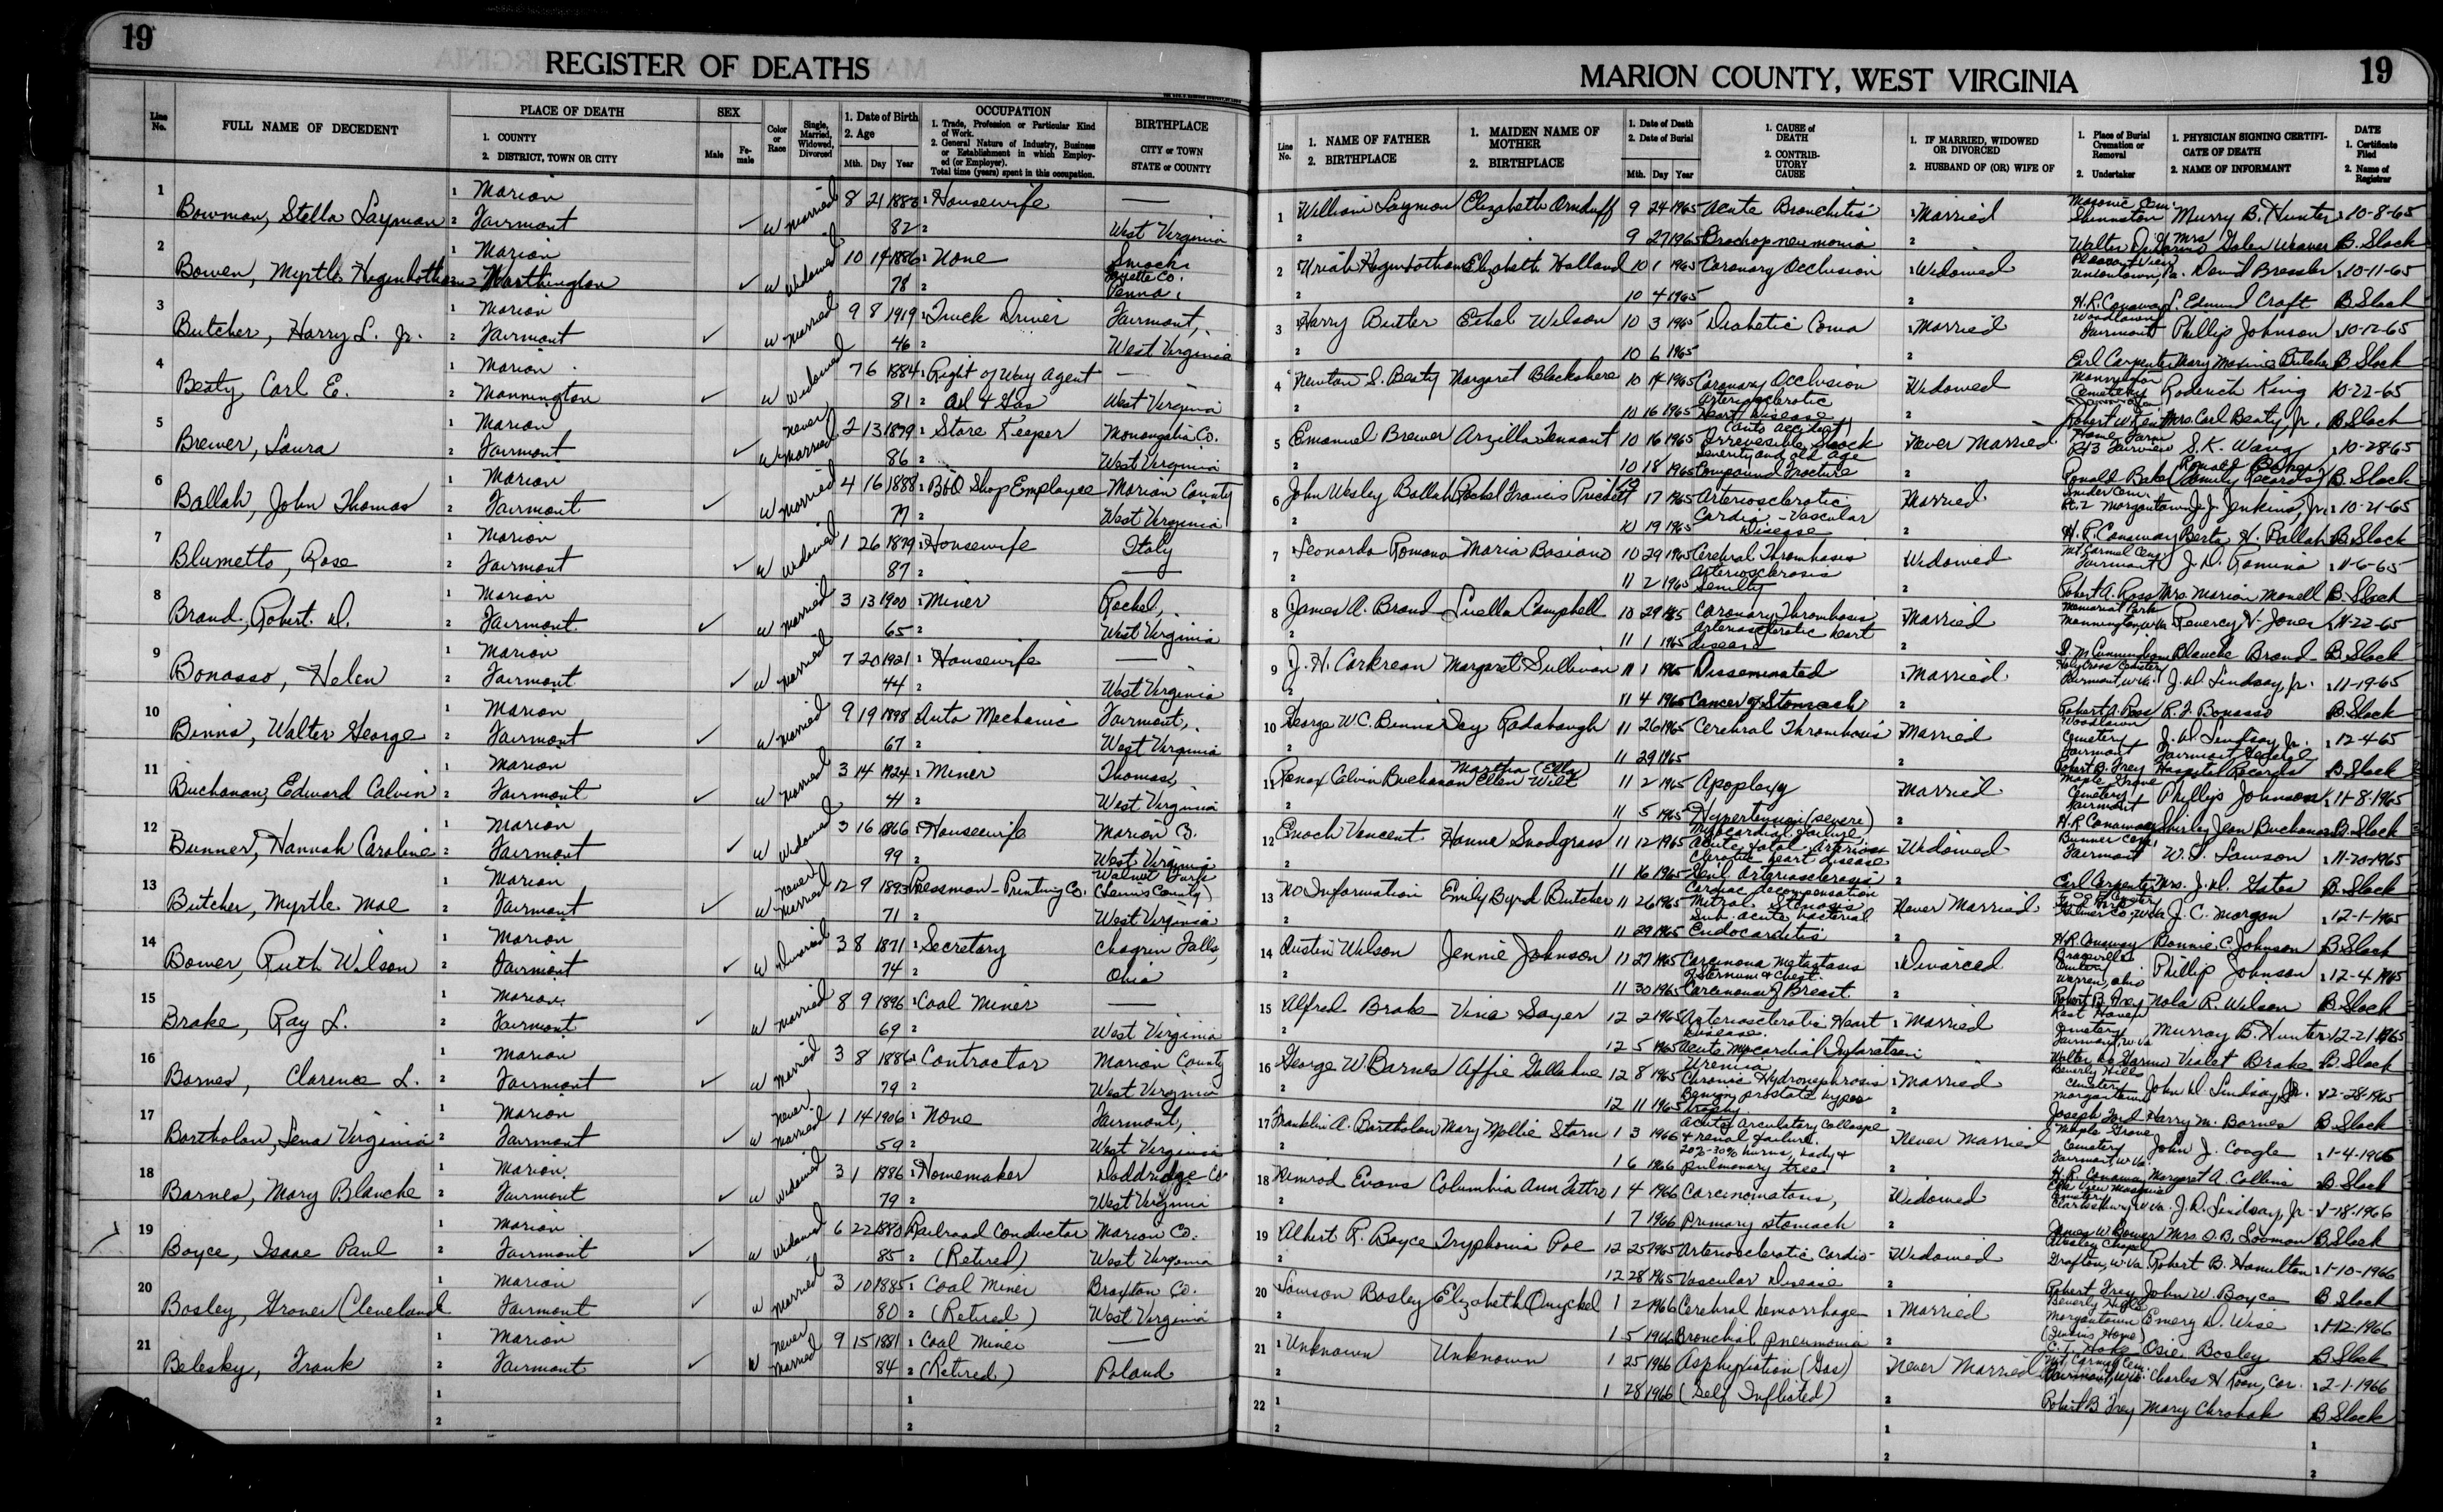 19
REGISTER OF DEATHS
Line No.
FULL NAME OF DECEDENT
PLACE OF DEATH
1. COUNTY
2. DISTRICT, TOWN OR CITY
SEX
Male
Female
Color or Race
Single, Married, Widowed, Divorced
1. Date of Birth
2. Age
Mth. Day Year
OCCUPATION
1. Trade, Profession or Particular Kind of Work.
2. General Nature of Industry, Business or Establishment in which Employed (or Employer).
Total time (years) spent in this occupation.
BIRTHPLACE
CITY or TOWN
STATE or COUNTY
1 Bowman, Stella Layman 1 Marion 2 Fairmont ✓ W Married 8 21 1883 82 Housewife — West Virginia
2 Bowen, Myrtle Higenbotham 1 Marion 2 Worthington ✓ W Widowed 10 14 1886 78 None Smock Fayette Co. Penna.
3 Butcher, Harry L. Jr. 1 Marion 2 Fairmont ✓ W Married 9 8 1919 46 Truck Driver Fairmont, West Virginia
4 Beaty, Carl E. 1 Marion 2 Mannington ✓ W Widowed 7 6 1884 81 Right of Way Agent Oil & Gas — West Virginia
5 Brewer, Laura 1 Marion 2 Fairmont ✓ W Never Married 2 13 1879 86 Store Keeper Monongalia Co. West Virginia
6 Ballah, John Thomas 1 Marion 2 Fairmont ✓ W Married 4 16 1888 77 B&O Shop Employee Marion County West Virginia
7 Blumetto, Rose 1 Marion 2 Fairmont ✓ W Widowed 1 26 1879 87 Housewife Italy —
8 Brand, Robert D. 1 Marion 2 Fairmont ✓ W Married 3 13 1900 65 Miner Rachel, West Virginia
9 Bonasso, Helen 1 Marion 2 Fairmont ✓ W Married 7 20 1921 44 Housewife — West Virginia
10 Binns, Walter George 1 Marion 2 Fairmont ✓ W Married 9 19 1898 67 Auto Mechanic Fairmont, West Virginia
11 Buchanan, Edward Calvin 1 Marion 2 Fairmont ✓ W Married 3 14 1924 41 Miner Thomas, West Virginia
12 Bunner, Hannah Caroline 1 Marion 2 Fairmont ✓ W Widowed 3 16 1866 99 Housewife Marion Co. West Virginia
13 Butcher, Myrtle Mae 1 Marion 2 Fairmont ✓ W Never Married 12 9 1893 71 Pressman - Printing Co. Walnut Fork (Lewis County) West Virginia
14 Bower, Ruth Wilson 1 Marion 2 Fairmont ✓ W Divorced 3 8 1871 74 Secretary Chagrin Falls, Ohio
15 Brake, Ray L. 1 Marion 2 Fairmont ✓ W Married 8 9 1896 69 Coal Miner — West Virginia
16 Barnes, Clarence L. 1 Marion 2 Fairmont ✓ W Married 3 8 1886 79 Contractor Marion County West Virginia
17 Bartholow, Lena Virginia 1 Marion 2 Fairmont ✓ W Never Married 1 14 1906 59 None Fairmont, West Virginia
18 Barnes, Mary Blanche 1 Marion 2 Fairmont ✓ W Widowed 3 1 1886 79 Homemaker Doddridge Co. West Virginia
19 Boyce, Isaac Paul 1 Marion 2 Fairmont ✓ W Widowed 6 22 1880 85 Railroad Conductor (Retired) Marion Co. West Virginia
20 Bosley, Grover Cleveland 1 Marion Fairmont ✓ W Married 3 10 1885 80 Coal Miner (Retired) Braxton Co. West Virginia
21 Belesky, Frank 1 Marion 2 Fairmont ✓ W Never Married 9 15 1881 84 Coal Miner (Retired) — Poland
MARION COUNTY, WEST VIRGINIA
19
Line No.
1. NAME OF FATHER
2. BIRTHPLACE
1. MAIDEN NAME OF MOTHER
2. BIRTHPLACE
1. Date of Death
2. Date of Burial
Mth. Day Year
1. CAUSE of DEATH
2. CONTRIBUTORY CAUSE
1. IF MARRIED, WIDOWED OR DIVORCED
2. HUSBAND OF (OR) WIFE OF
1. Place of Burial Cremation or Removal
2. Undertaker
1. PHYSICIAN SIGNING CERTIFICATE OF DEATH
2. NAME OF INFORMANT
DATE
1. Certificate Filed
2. Name of Registrar
1 William Layman Elizabeth Ornduff 9 24 1965 Acute Bronchitis Married Masonic Cem. Shinnston Murry B. Hunter 10-8-65
9 27 1965 Bronchopneumonia Mrs Galen Weaver B. Slack
2 Uriah Higenbotham Elizabeth Holland 10 1 1965 Coronary Occlusion Widowed Pleasant View Uniontown, Pa. David Bressler 10-11-65
10 4 1965 H.R. Conaway L. Edmund Craft B Slack
3 Harry Butler Ethel Wilson 10 3 1965 Diabetic Coma Married Woodlawn Fairmont Phillip Johnson 10-12-65
10 6 1965 Earl Carpenter Mary Maxine Butcher B Slack
4 Newton S. Beaty Margaret Blackshere 10 14 1965 Coronary Occlusion Widowed Mannington Cemetery Roderick King 10-22-65
10 16 1965 Arteriosclerotic Heart Disease Mrs. Carl Beaty Jr. B Slack
5 Emanuel Brewer Arzilla Tennant 10 16 1965 (auto accident) Irreversible Shock Never Married Home Farm Rt 3 Fairview S.K. Wang 10-28-65
10 18 1965 Severity and old age Compound Fracture Ronald Baker Ronald Baker (Family Records) B. Slack
6 John Wesley Ballah Rachel Francis Prickett 10 17 1965 Arteriosclerotic Married Snider Cem. Rt. 2 Morgantown J.J. Jenkins, Jr. 10-21-65
10 19 1965 Cardio-Vascular Disease H.R. Conaway Berta H. Ballah B Slack
7 Leonardo Romano Maria Basiano 10 29 1965 Cerebral Thrombosis Widowed Mt Carmel Cem. Fairmont J.D. Romino 11-6-65
11 2 1965 Arteriosclerosis Senility Robert A. Ross Mrs. Marion Manell B. Slack
8 James A. Brand Luella Campbell 10 29 1965 Coronary Thrombosis Married Memorial Park Mannington, W.Va. Revercy N. Jones 11-22-65
11 1 1965 Arteriosclerotic heart disease Blanche Brand B Slack
9 J. H. Corkrean Margaret Sullivan 11 1 1965 Disseminated Married Holy Cross Cemetery Fairmont W.Va. J.D. Lindsay, Jr. 11-19-65
11 4 1965 Cancer of Stomach Robert A. Ross R.J. Bonasso B. Slack
10 George W.C. Binns Icy Radabaugh 11 26 1965 Cerebral Thrombosis Married Woodlawn Cemetery Fairmont J.D. Lindsay Jr. 12-4-65
11 29 1965 Robert B. Frey Fairmont General Hospital Records B Slack
11 Calvin Buchanan Martha (Ella) Ellen Wilt 11 2 1965 Apoplexy Married Maple Grove Cemetery Fairmont Phillip Johnson 11-8-1965
11 5 1965 Hypertension (severe) H.R. Conaway Shirley Jean Buchanan B. Slack
12 Enoch Vincent Hanna Snodgrass 11 12 1965 Myocardial failure, Acute fatal Arteriosclerotic heart disease Widowed Bunner Cem. Fairmont W.T. Lawson 11-20-1965
11 16 1965 Senil Arteriosclerosis Earl Carpenter Mrs. J.D. Yates B. Slack
13 No Information Emily Byrd Butcher 11 26 1965 Cardiac decompensation Mitral Stenosis Never Married Gilmer Co., W.Va J.C. Morgan 12-1-1965
11 29 1965 Sub. acute bacterial Endocarditis H.R. Conaway Bonnie C. Johnson B. Slack
14 Austin Wilson Jennie Johnson 11 27 1965 Carcinoma Metastasis of Sternum & Chest. Divorced Braceville Cemetery Warren, Ohio Phillip Johnson 12-4-1965
11 30 1965 Carcinoma of Breast. Robert B. Frey Nola R. Wilson B Slack
15 Alfred Brake Vinia Sayer 12 2 1965 Arteriosclerotic Heart Disease Married Rest Haven Cemetery Fairmont, W.Va Murray B. Hunter 12-21-1965
12 5 1965 Acute Myocardial Infarction Violet Brake B. Slack
16 George W. Barnes Affie Gallahue 12 8 1965 Uremia Chronic Hydronephrosis Married Beverly Hills Cemetery Morgantown John D. Lindsay, Jr. 12-28-1965
12 11 1965 Benign prostate hypertrophy Joseph Ford Harry M. Barnes B Slack
17 Franklin A. Bartholow Mary Mollie Starn 1 3 1966 Acute Circulatory Collaspe & renal failure. Never Married Maple Grove Cemetery Fairmont, W.Va. John J. Coogle 1-4-1966
1 6 1966 20%-30% burns, body & pulmonary tree H.R. Conaway Margaret A. Collins B. Slack
18 Nimrod Evans Columbia Ann Fettro 1 4 1966 Carcinomatosis, Widowed Elk View Masonic Cemetery Clarksburg, W.Va. J.D. Lindsay, Jr. 1-18-1966
1 7 1966 Primary stomach Mrs. O.B. B. Slack
19 Albert R. Boyce Tryphonia Poe 12 25 1965 Arteriosclerotic Cardio- Widowed Wesley Chapel Grafton, W.Va Robert B. Hamilton 1-10-1966
12 28 1965 Vascular Disease Robert Frey John W. Boyce B Slack
20 Bosley Elizabeth 1 2 1966 Cerebral hemorrhage Married Beverly Hills Morgantown Emery D. Wise 1-12-1966
1 5 1966 Bronchial pneumonia Osie Bosley B Slack
21 Unknown Unknown 1 25 1966 Asphyxiation (Gas) Never Married Mt. Carmel Cem. Fairmont, W.Va. Charles H Koon, Cor. 2-1-1966
1 28 1966 (Self Inflicted) Robert B Frey Mary Chrobak B Slack
22